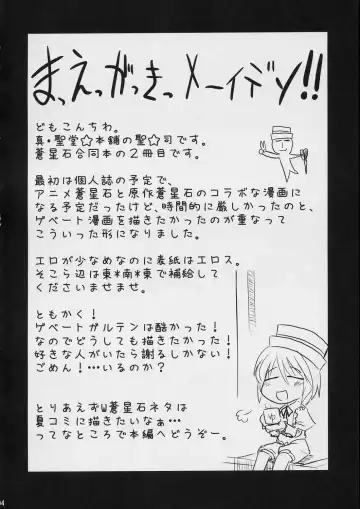 まえっがっきっメーイデン!!
どもこんちわ。
真・聖堂☆本舗の聖☆司です。
蒼星石合同本の2冊目です。
最初は個人誌の予定で、
アニメ蒼星石と原作蒼星石のコラボな漫画に
なる予定だったけど、時間的に厳しかったのと、
ゲベート漫画を描きたかったのが重なって
こういった形になりました。
エロが少なめなのに表紙はエロス。
そこら辺は東*南*東で補給して
くださいませませ。
ともかく!
ゲベートガルテンは酷かった!
なのでどうしても描きたかった!
好きな人がいたら謝るしかない!
ごめん!…いるのか?
とりあえずW蒼星石ネタは
夏コミに描きたいなぁ…
ってなところで本編へどうぞー。
04